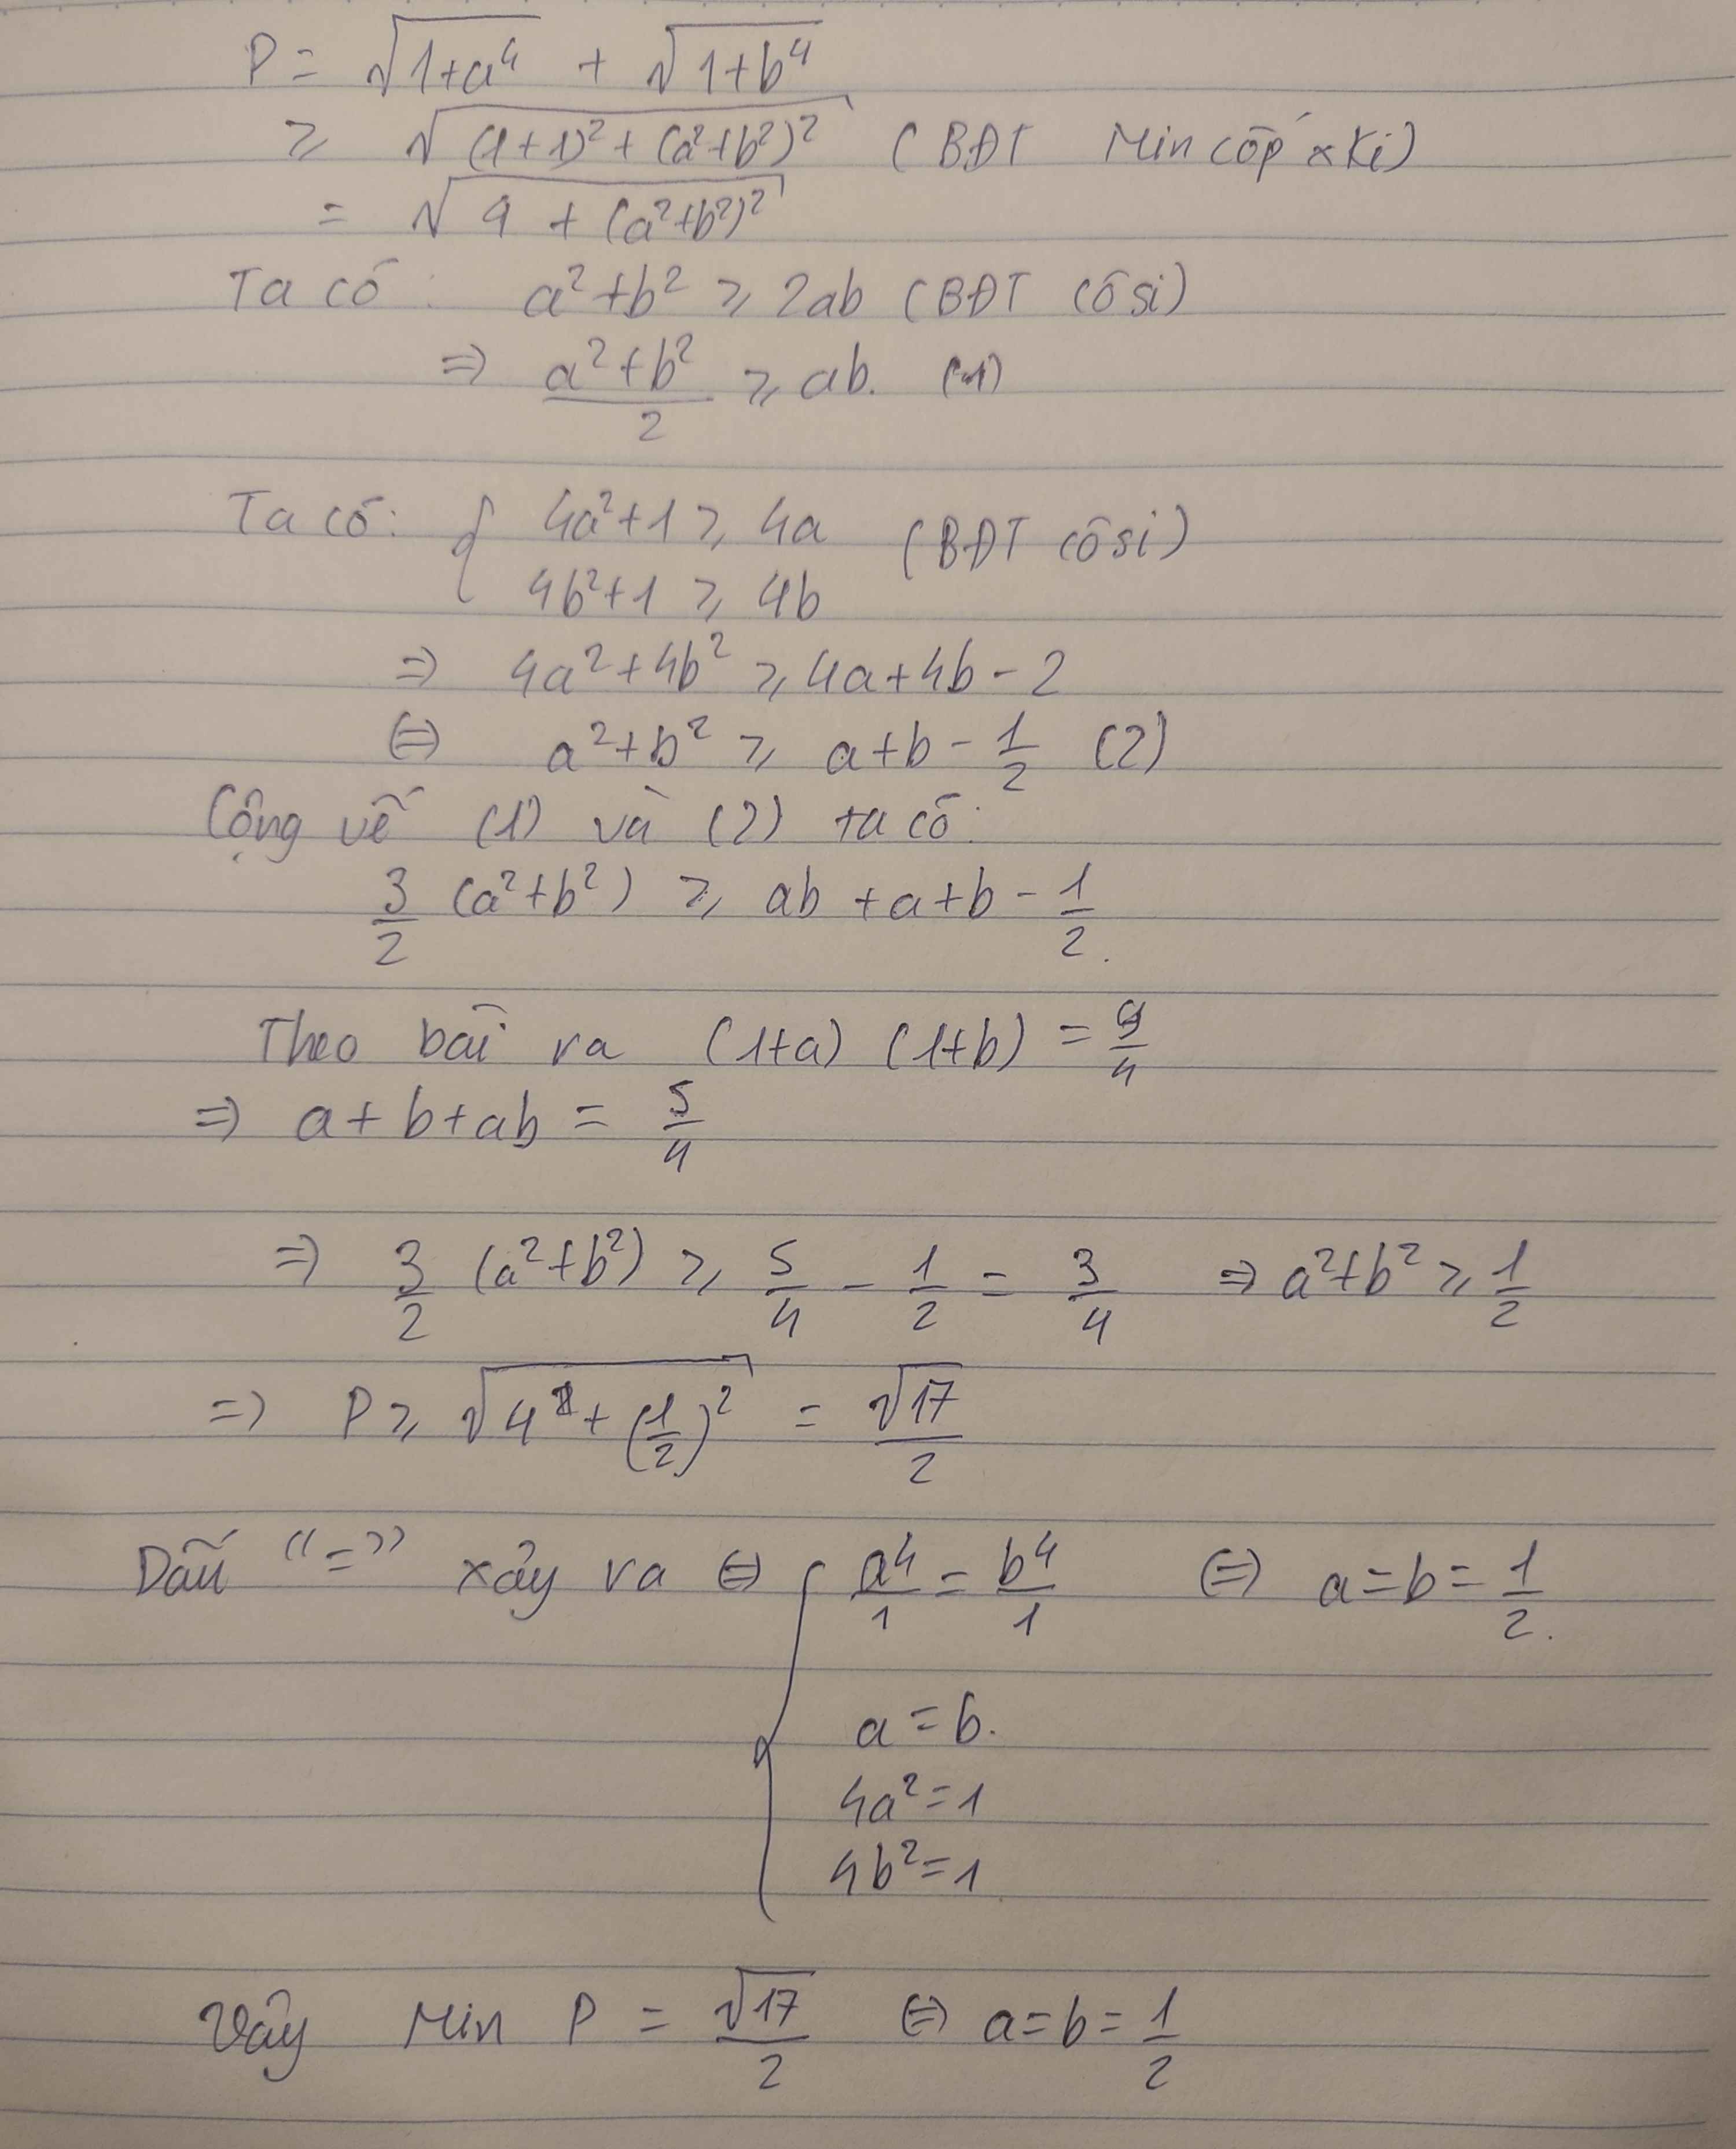 P = √(1+a⁴) + √(1+b⁴)
≥ √((1+1)² + (a²+b²)²) (BĐT Mincốpxki)
= √(4 + (a²+b²)²)
Ta có: a²+b² ≥ 2ab (BĐT côsi)
⇒ (a²+b²)/2 ≥ ab. (1)
Ta có: { 4a²+1 ≥ 4a (BĐT côsi)
4b²+1 ≥ 4b
⇒ 4a²+4b² ≥ 4a+4b-2
⇔ a²+b² ≥ a+b - 1/2 (2)
Cộng vế (1) và (2) ta có:
3/2 (a²+b²) ≥ ab + a+b - 1/2.
Theo bài ra (1+a)(1+b) = 9/4
⇒ a+b+ab = 5/4
⇒ 3/2 (a²+b²) ≥ 5/4 - 1/2 = 3/4 ⇒ a²+b² ≥ 1/2
⇒ P ≥ √(4 + (1/2)²) = √17/2
Dấu "=" xảy ra ⇔ { a⁴/1 = b⁴/1 ⇔ a=b=1/2.
a=b.
4a²=1
4b²=1
Vậy Min P = √17/2 ⇔ a=b=1/2